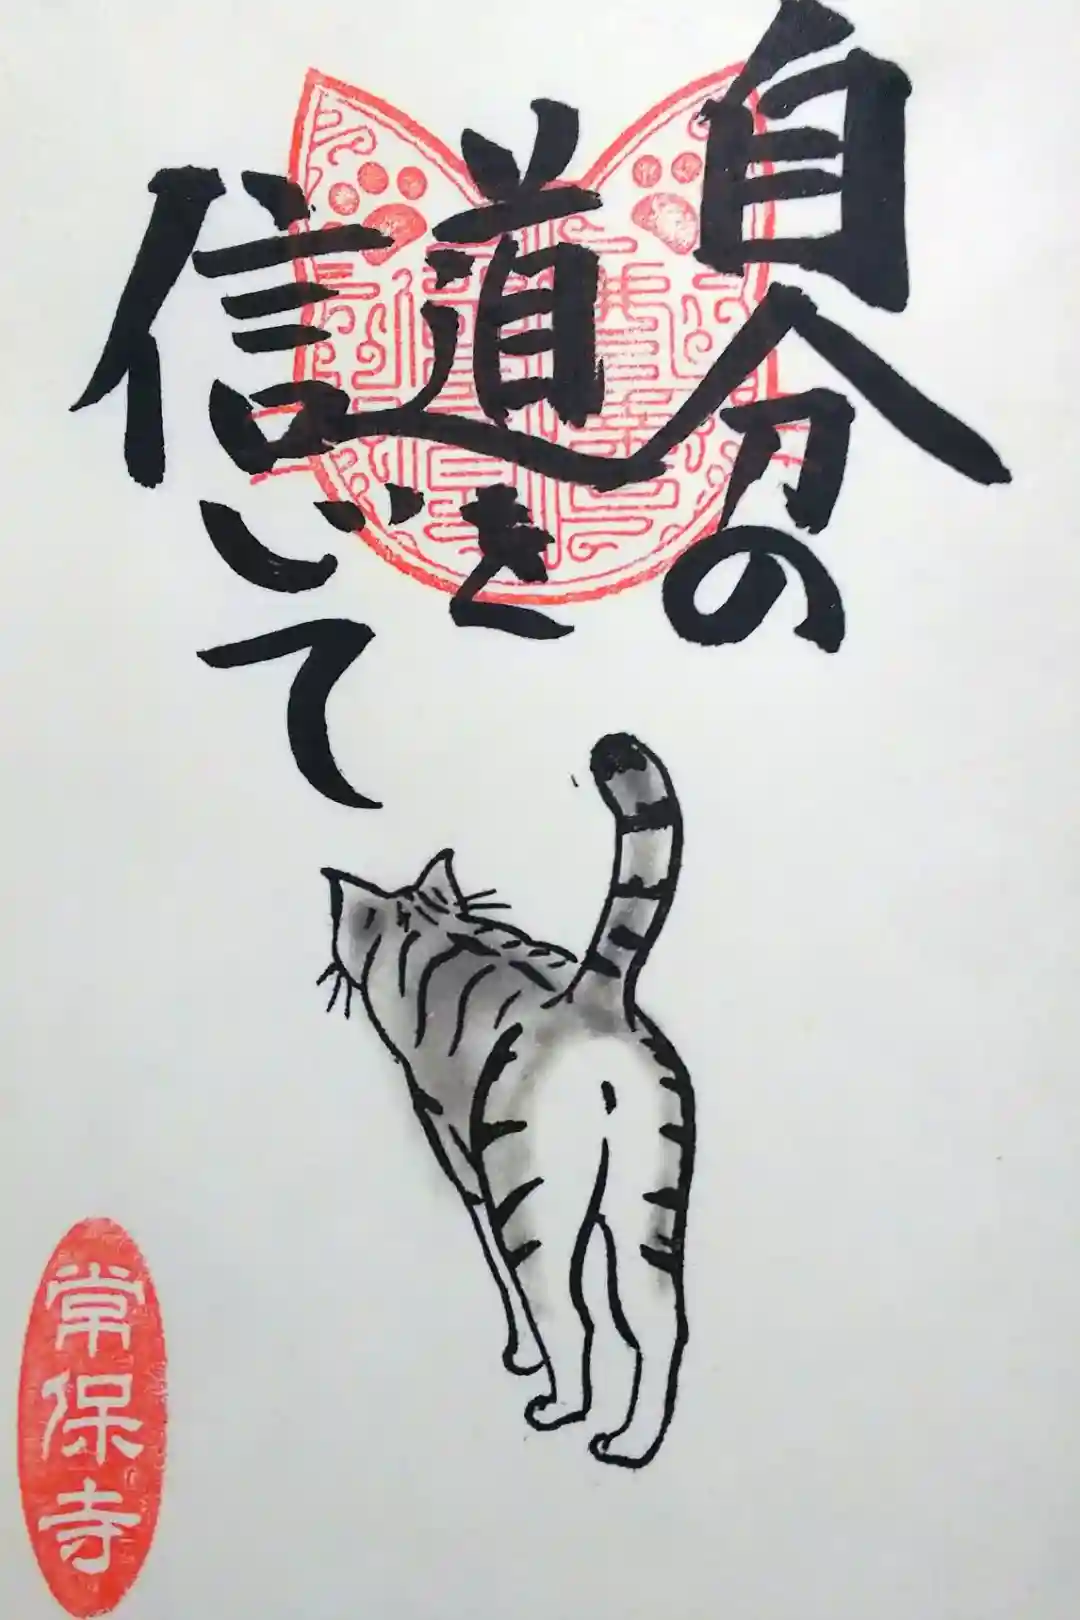 自分の
道を
信じて
常保寺